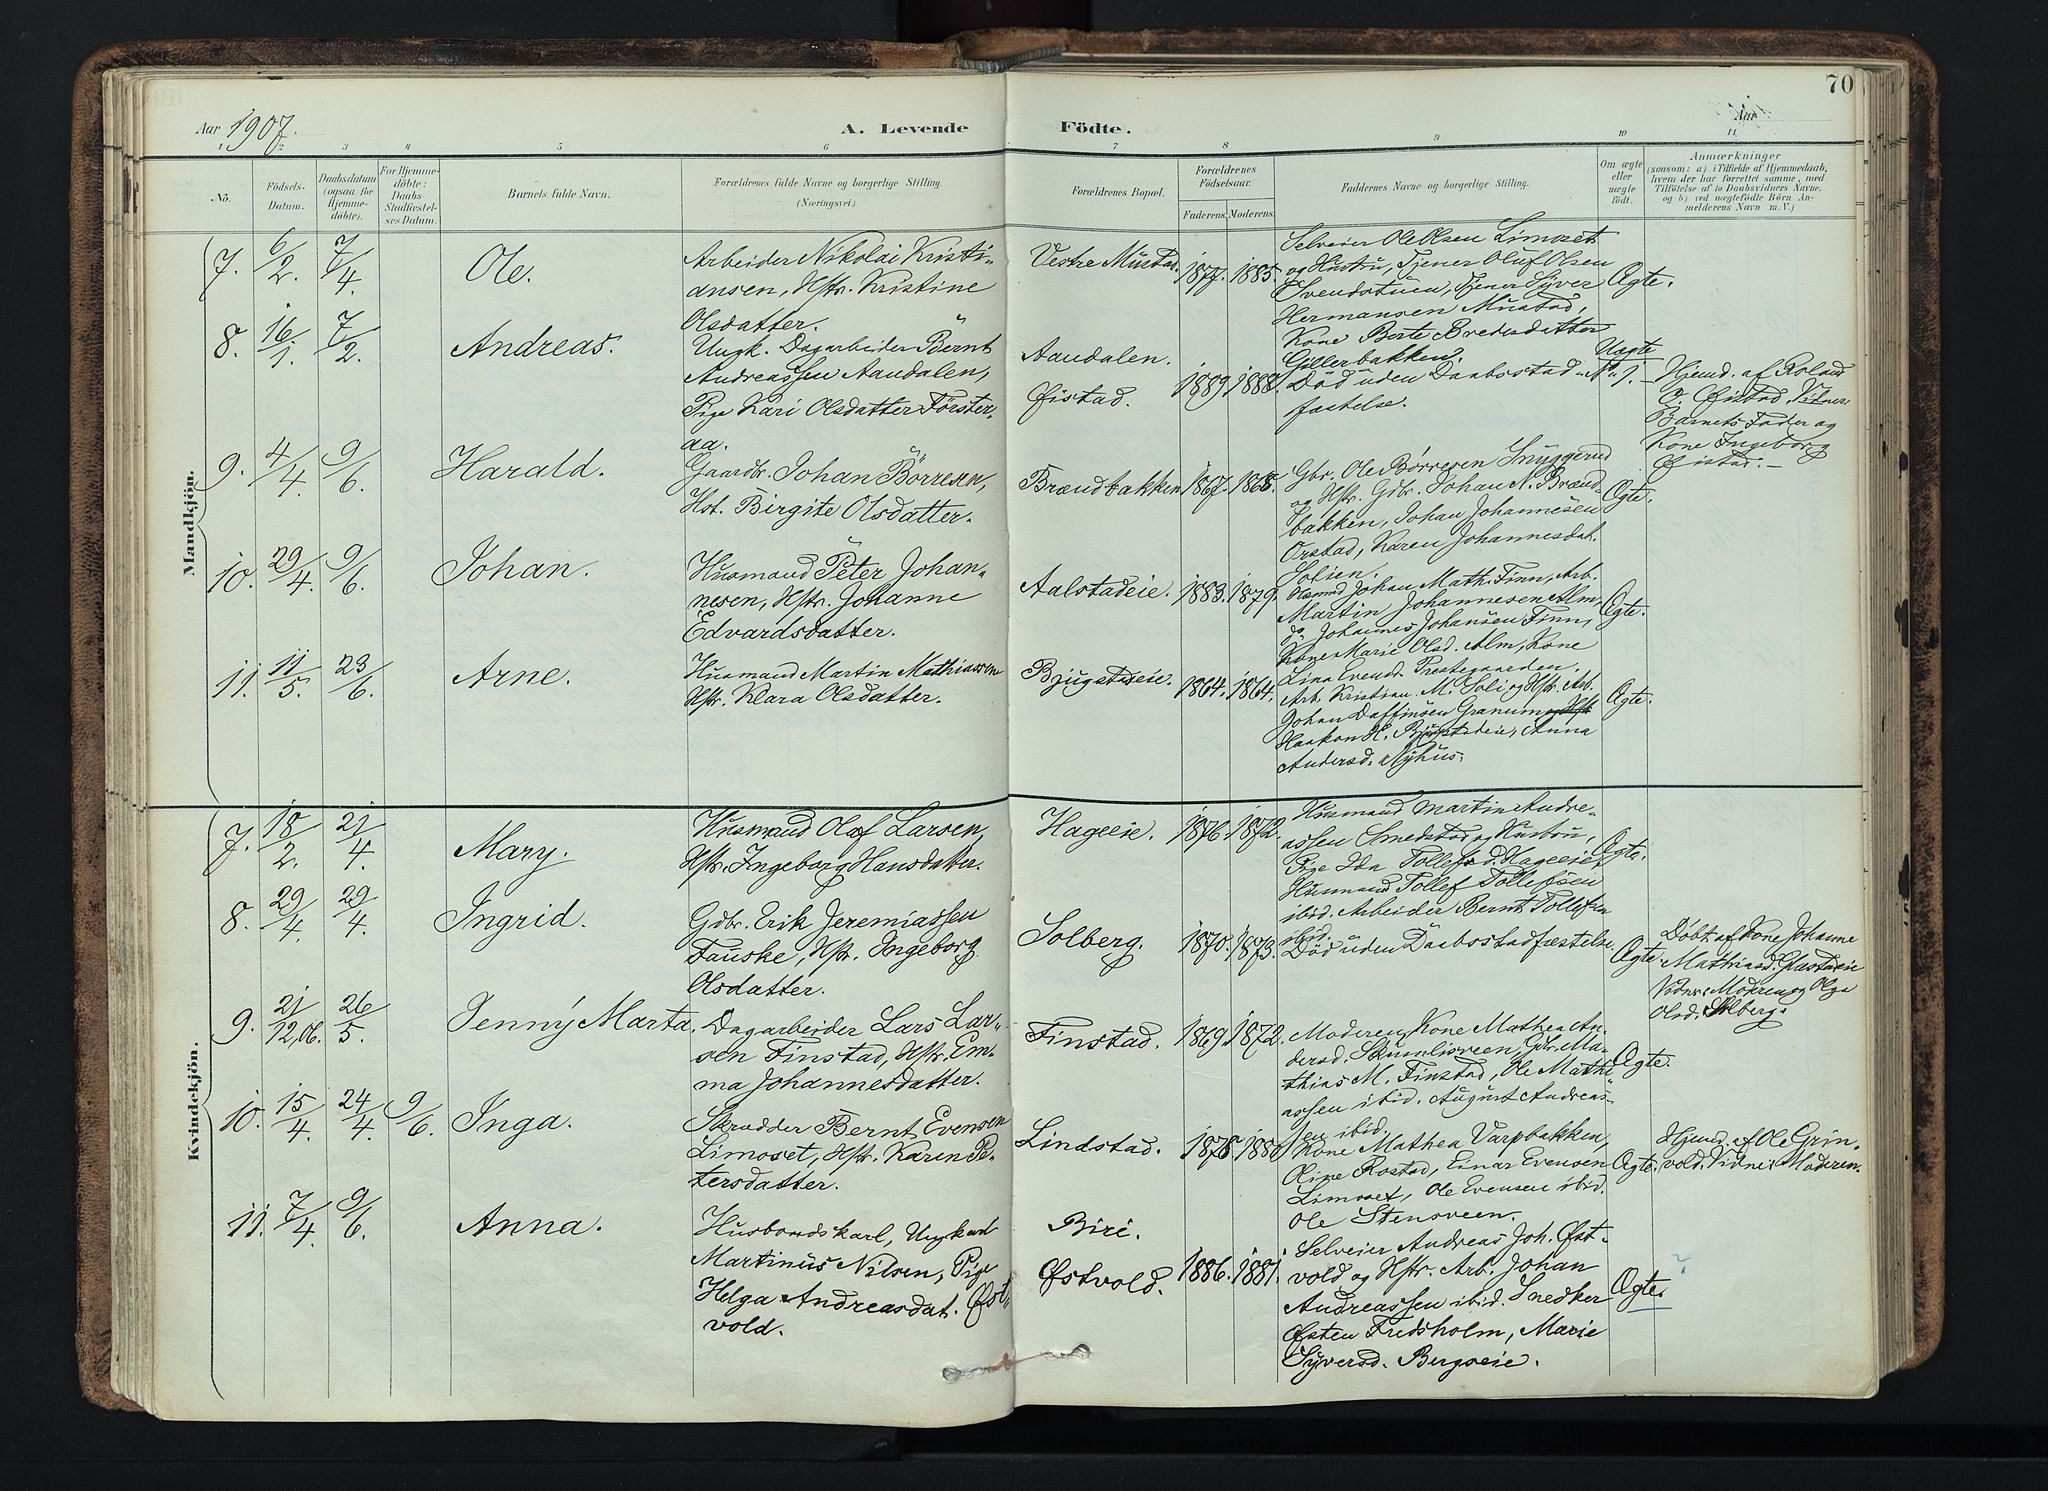 70
Aar 1907.
A. Levende Födte.
Aar
1 2 3 4 5 6 7 8 9 10 11
No.
Födsels-
Datum.
Daabsdatum
(ogsaa for
Hjemme-
döbte).
For Hjemme-
döbte:
Daabs-
Stadfæstel-
ses Datum.
Barnets fulde Navn.
Forældrenes fulde Navne og borgerlige Stilling.
(Næringsvei.)
Forældrenes Bopæl.
Forældrenes
Födselsaar.
Faderens. Moderens.
Faddernes Navne og borgerlige Stilling.
Om ægte
eller
uægte
født.
Anmærkninger
(saasom: a) i Tilfælde af Hjemmedaab,
hvem der har forrettet samme, med
Tilföielse af to Daabsvidners Navne,
og b) ved uægtefödte Börn An-
melderens Navn m. V.)
Mandkjön.
7. 6/2. 7/4. Ole.
Arbeider Nikolai Kristi-
ansen, Hstr. Kristine
Olsdatter.
Vestre Mustad. 1874. 1885.
Selveier Ole Olsen Limoset
og Hustru, Tjener Oluf Olsen
Svendstuen, Tjener Syver
Hermansen Mustad,
Kone Berte Bredesdatter
Gillerbakken.
Ægte.
8. 16/1. 7/2. Andreas.
Ungk. Dagarbeider Bernt
Andreassen Aandalen,
Pige Kari Olsdatter Förster-
aa.
Aandalen.
Øistad.
1889. 1888.
Död uden Daabsstad-
fæstelse.
Uægte
Hjemd. af Roland
O. Øistad, Vidner:
Barnets Fader og
Kone Ingeborg
Øistad.
9. 4/4. 9/6. Harald.
Gaardbr. Johan Börresen,
Hst. Birgite Olsdatter.
Brændbakken 1867. 1868.
Gbr. Ole Børresen Snyggerud
og Hstr. Gdbr. Johan N. Brænd-
bakken, Johan Johannesen
Orstad, Karen Johannesdat.
Solien.
Ægte.
10. 29/4. 9/6. Johan.
Husmand Peter Johan-
nesen, Hstr. Johanne
Edvardsdatter.
Aalstadeie. 1883. 1879.
Husmd Johan Math. Finn, Arb.
Martin Johannesen Alm,
do Johannes Johansen Finn,
Kone Marie Olsd. Alm, Kone
Lina Evensd. Prestegaarden.
Ægte.
11. 11/5. 23/6. Arne.
Husmand Martin Mathiassen
Hstr. Klara Olsdatter.
Bjugstadeie. 1864. 1864.
Arb. Kristian M. Soli og Hstr. Arb.
Johan Daffinsen Granum og Hst
Haakon H. Bjugstadeie, Anna
Andersd. Nyhus.
Ægte.
Kvindekjön.
7. 18/2. 21/4. Mary.
Husmand Olaf Larsen,
Hstr. Ingeborg Hansdatter.
Hageeie. 1876. 1872.
Husmand Martin Andre-
assen Smedstad og Hustru,
Pige Ida Tollefsd. Hageeie,
Husmand Tollef Tollefsen
ibid. Arbeider Bernt Tollefsen
ibid.
Ægte.
8. 29/4. 29/4. Ingrid.
Gdbr. Erik Jeremiassen
Fauske, Hstr. Ingeborg
Olsdatter.
Solberg. 1870. 1873.
Död uden Daabsstadfæstelse.
Ægte.
Döbt af Kone Johanne
Mathiasd.
Vidner: Moderen og Olga
Olsd. Solberg.
9. 21/12,06. 26/5. Jenny Marta.
Dagarbeider Lars Lar-
sen Finstad, Hstr. Em-
ma Johannesdatter.
Finstad. 1869. 1872.
Moderen, Kone Mathea An-
dersd. Skumlisveen, Gdbr. Ma-
thias M. Finstad, Ole Mathi-
assen ibid. August Andreas-
sen ibid.
Ægte.
10. 15/4. 24/4. 9/6. Inga.
Skrædder Bernt Evensen
Limoset, Hstr. Karen Pe-
tersdatter.
Lindstad. 1878.
Kone Mathea Varpbakken,
Oline Rostad, Einar Evensen
Limoset, Ole Evensen ibid.
Ole Stensveen.
Ægte.
Hjemd. af Ole Grin-
vold. Vidne: Moderen.
11. 7/4. 9/6. Anna.
Husbondskarl, Ungkarl
Martinus Nilsen, Pige
Helga Andreasdat. Øst-
vold.
Biri.
Østvold.
1886. 1881.
Selveier Andreas Joh. Øst-
vold og Hstr. Arb. Johan
Andreassen ibid. Snedker
Østen Fredsholm, Marie
Syversd. Bergseie.
Ægte.
?